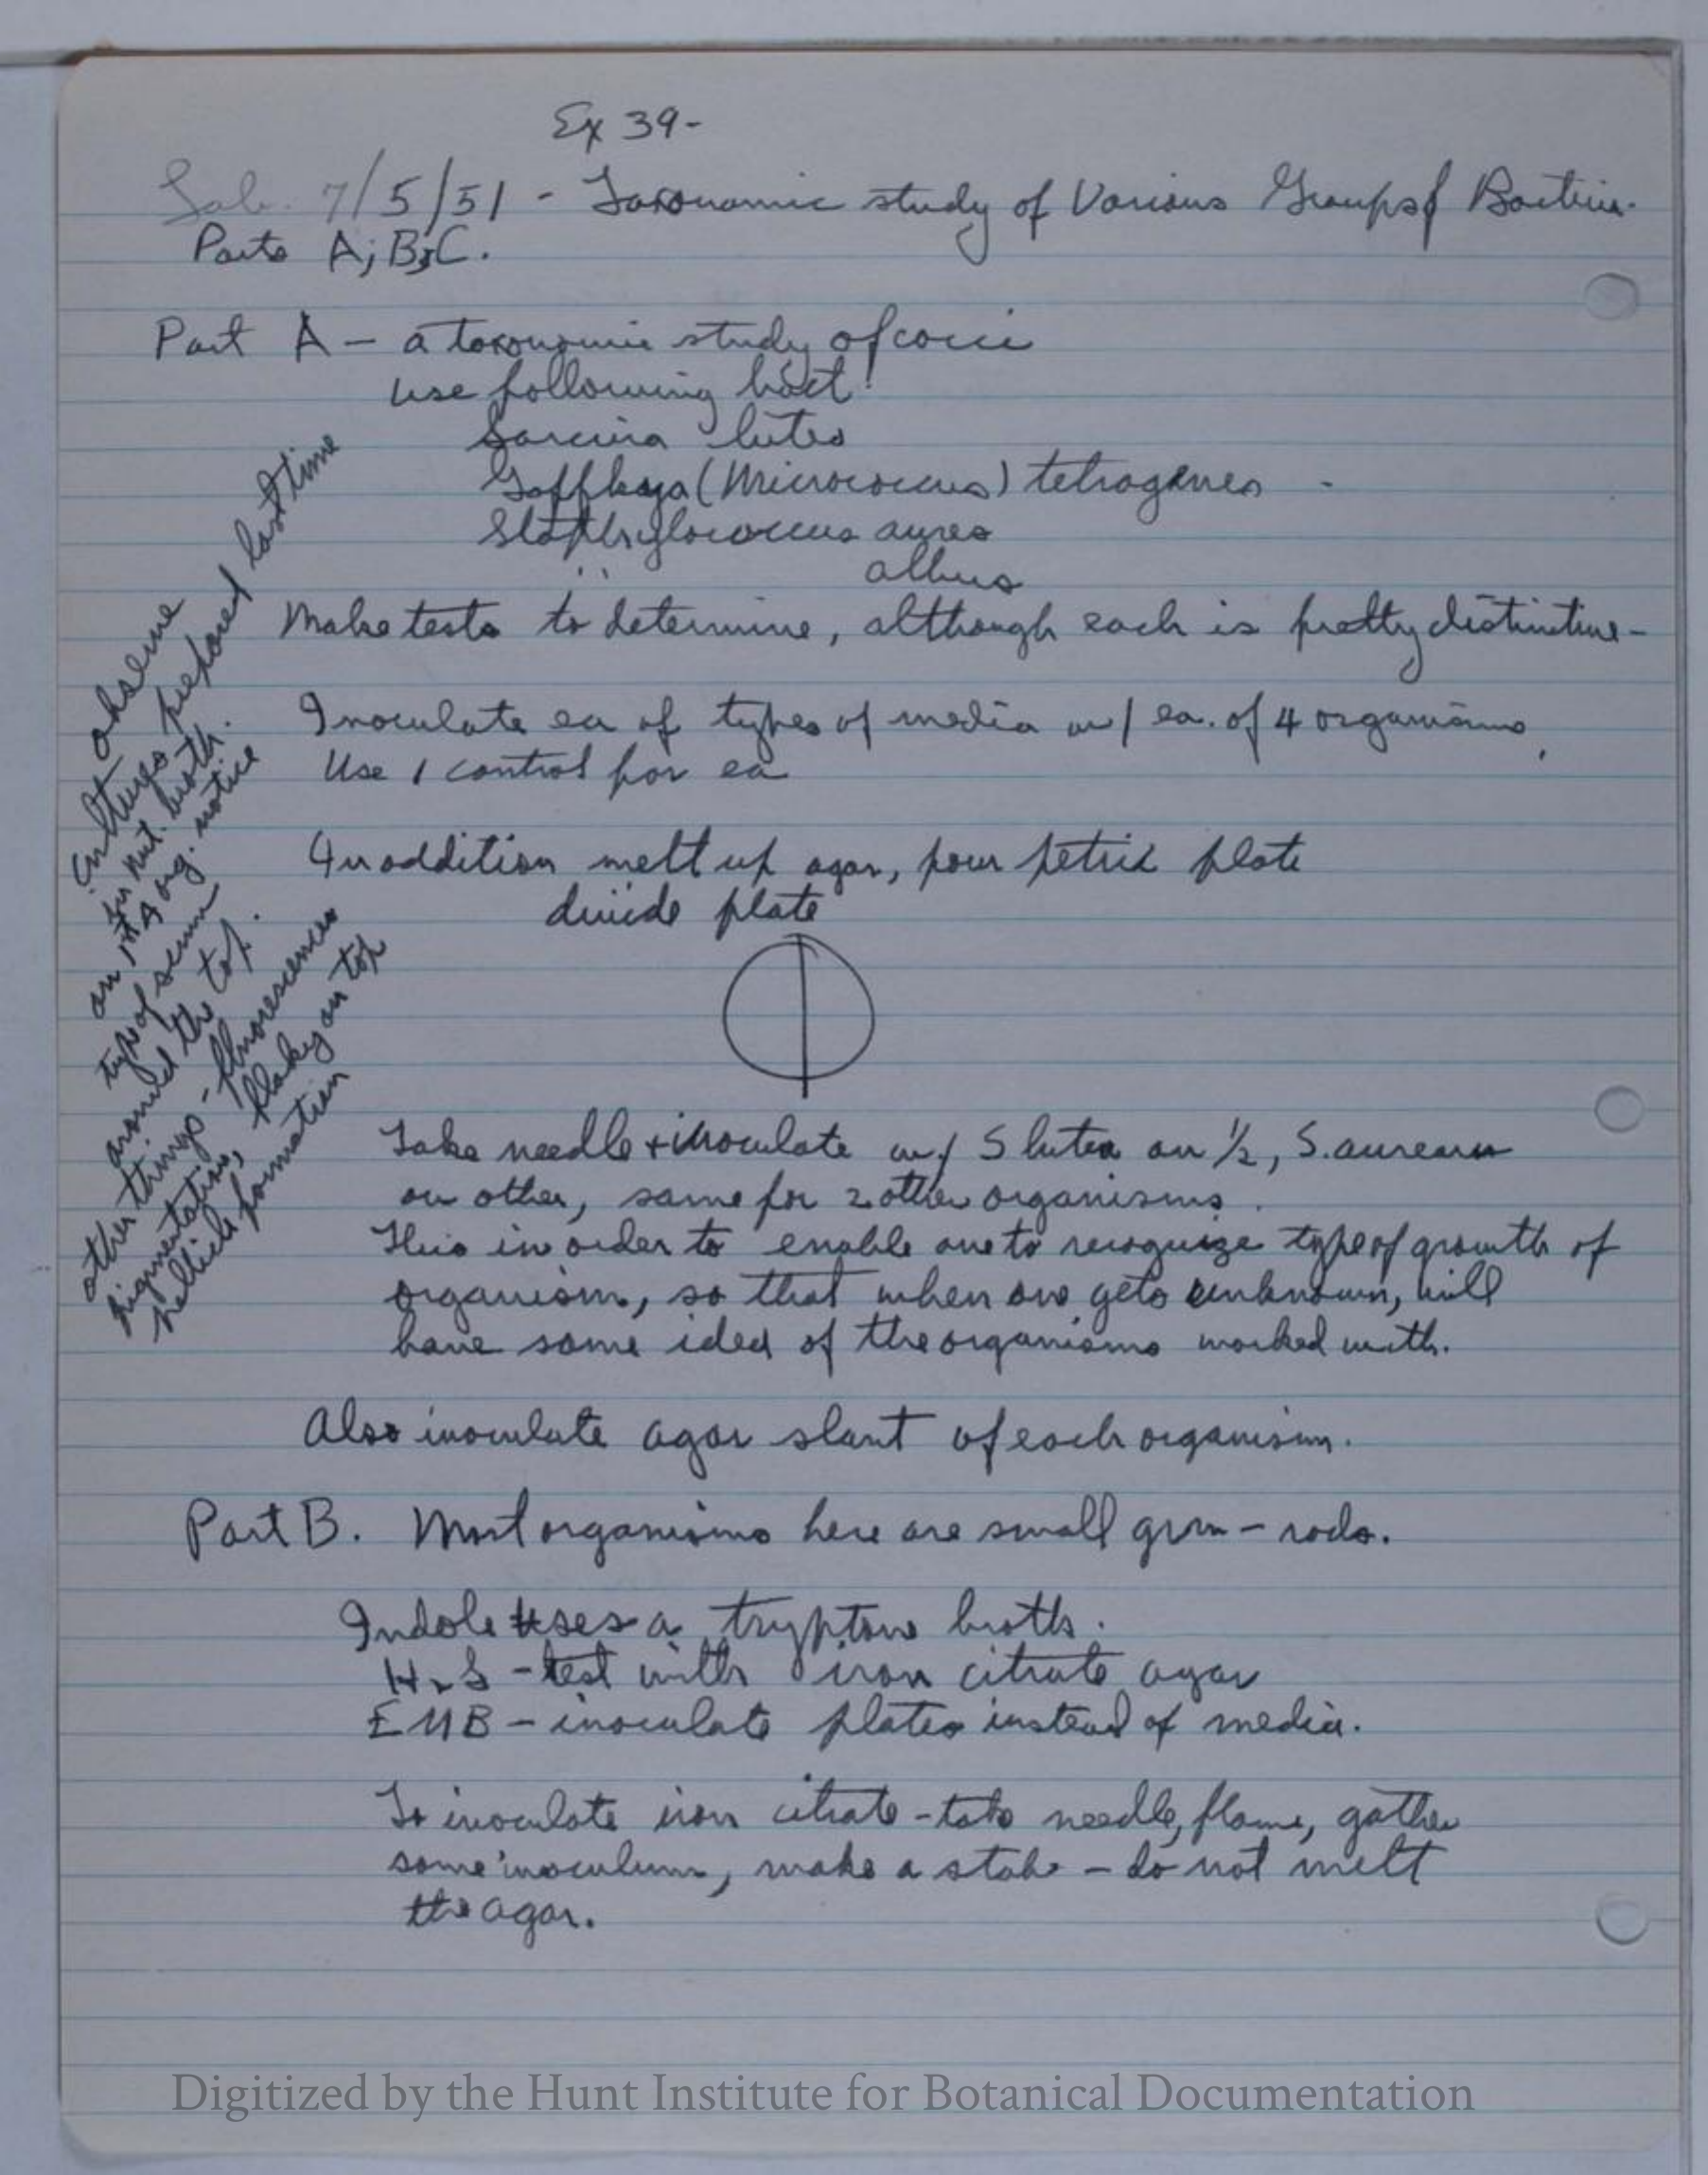 Ex 39-
Lab. 7/5/51 - Taxonomic study of Various Groups of Bacteria.
Parts A; B; C.
Part A - a taxonomic study of cocci
use following bact!
Sarcina lutea
Gaffkya (Micrococcus) tetragenes -
Staphylococcus aureo
" albus
Make tests to determine, although each is pretty distinctive-
Inoculate ea of types of media w/ ea. of 4 organisms,
Use 1 control for ea
In addition melt up agar, pour petrie plate
divide plate
Take needle + inoculate w/ S lutea on 1/2, S. aureans
on other, same for 2 other organisms.
This in order to enable one to recognize type of growth of
organism, so that when one gets unknown, will
have some idea of the organisms worked with.
Also inoculate agar slant of each organism.
Part B. Most organisms here are small grm - rods.
Indole uses a tryptone broth.
H2S - test with iron citrate agar
EMB - inoculate plates instead of media.
To inoculate iron citrate - take needle, flame, gather
some inoculum, make a stab - do not melt
the agar.
observe
cultures prepared last time
in nut. broth.
on 1st 4 org. notice
type of scum
around the top.
other things - fluorescences
pigmentation, flaky on top
pellicle formation
Digitized by the Hunt Institute for Botanical Documentation